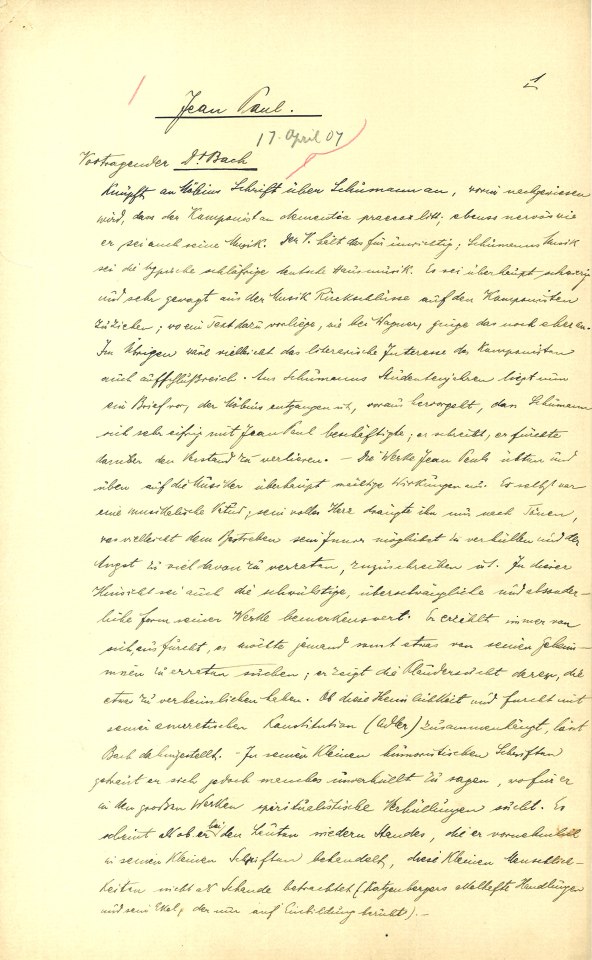 1
Jean Paul.
17. April 07
Vortragender Dr Bach
Knüpft an Möbius Schrift über Schumann an, worin nachgewiesen
wird, dass der Komponist an dementia praecox litt; ebenso nervös wie
er sei auch seine Musik. Der V. hält das für unwichtig; Schumanns Musik
sei die typische schläfrige deutsche Hausmusik. Es sei überhaupt schwierig
und sehr gewagt aus der Musik Rückschlüsse auf den Komponisten
zu ziehen; wo ein Text dazu vorliege, wie bei Wagner, ginge das noch eher an.
Im Übrigen wäre vielleicht das literarische Interesse des Komponisten
auch aufschlußreich. Aus Schumanns Studentenjahren liegt nun
ein Brief vor, der Möbius entgangen ist, woraus hervorgeht, dass Schumann
sich sehr eifrig mit Jean Paul beschäftigte; er schreibt, er fürchte
darüber den Verstand zu verlieren. – Die Werke Jean Pauls übten und
üben auf die Musiker überhaupt mächtige Wirkungen aus. Er selbst war
eine musikalische Natur; sein volles Herz drängte ihn nur nach Tönen,
was vielleicht dem Bestreben sein Inneres möglichst zu verhüllen und der
Angst zu viel davon zu verraten, zuzuschreiben ist. In dieser
Hinsicht sei auch die schwülstige, überschwängliche und absonder-
liche Form seiner Werke bemerkenswert. Er erzählt immer von
sich, aus Furcht, es möchte jemand sonst etwas von seinen Geheim-
nissen zu erraten suchen; er zeigt die Plaudersucht derer, die
etwas zu verheimlichen haben. Ob diese Heimlichkeit und Furcht mit
seiner enuretischen Konstitution (Adler) zusammenhängt, lässt
Bach dahingestellt. – In seinen kleinen humoristischen Schriften
getraut er sich jedoch manches unverhüllt zu sagen, wofür er
in den großen Werken spiritualistische Verhüllungen sucht. Es
scheint als ob er bei den Leuten niedern Standes, die er vornehmlich
in seinen kleinen Schriften behandelt, diese kleinen Menschlich-
keiten nicht als Schande betrachtet (Katzenbergers ekelhafte Handlungen
und sein Ekel, der nur auf Einbildung beruht). –